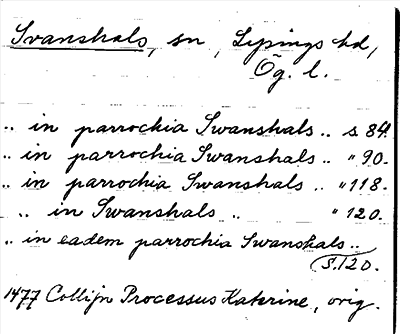 Svanshals, sn, Lysings hd,
Ög. l.
.. in parrochia Swanshals .. s 84.
.. in parrochia Swanshals .. " 90.
.. in parrochia Swanshals .. " 118.
.. in Swanshals .. " 120.
.. in eadem parrochia Swanshals ..
s. 120.
1477 Collijn Processus Katerine, orig.